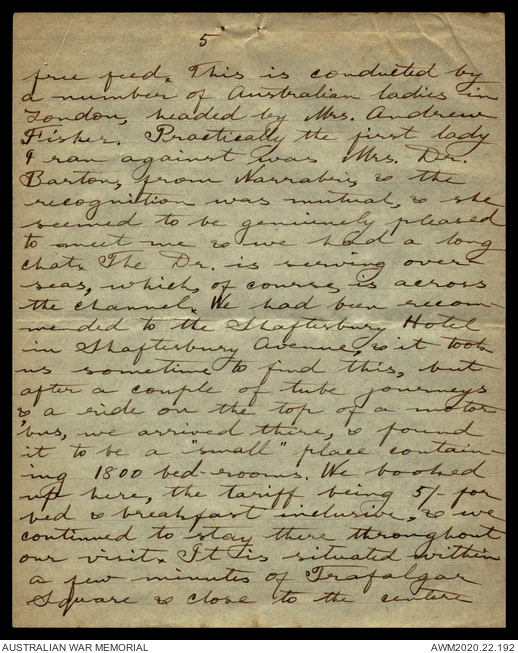 5
free feed. This is conducted by
a number of Australian ladies in
London, headed by Mrs. Andrew
Fisher. Practically the first lady
I ran against was Mrs. Dr.
Barton, from Narrabri, & the
recognition was mutual, & she
seemed to be geniunely pleased
to meet me & we had a long
chat. The Dr. is serving over
seas, which, of course, is across
the channel. We had been recom-
mended to the Shaftesbury Hotel
in Shaftesbury Avenue, & it took
us sometime to find this, but
after a couple of tube journeys
& a ride on the top of a motor
bus, we arrived there, & found
it to be a "small" place contain-
ing 1800 bed-rooms. We booked
up here, the tariff being 5/- for
bed & breakfast inclusive, & we
continued to stay there throughout
our visit. It is situated within
a few minutes of Trafalgar
Square & close to the centere
AUSTRALIAN WAR MEMORIAL
AWM2020.22.192